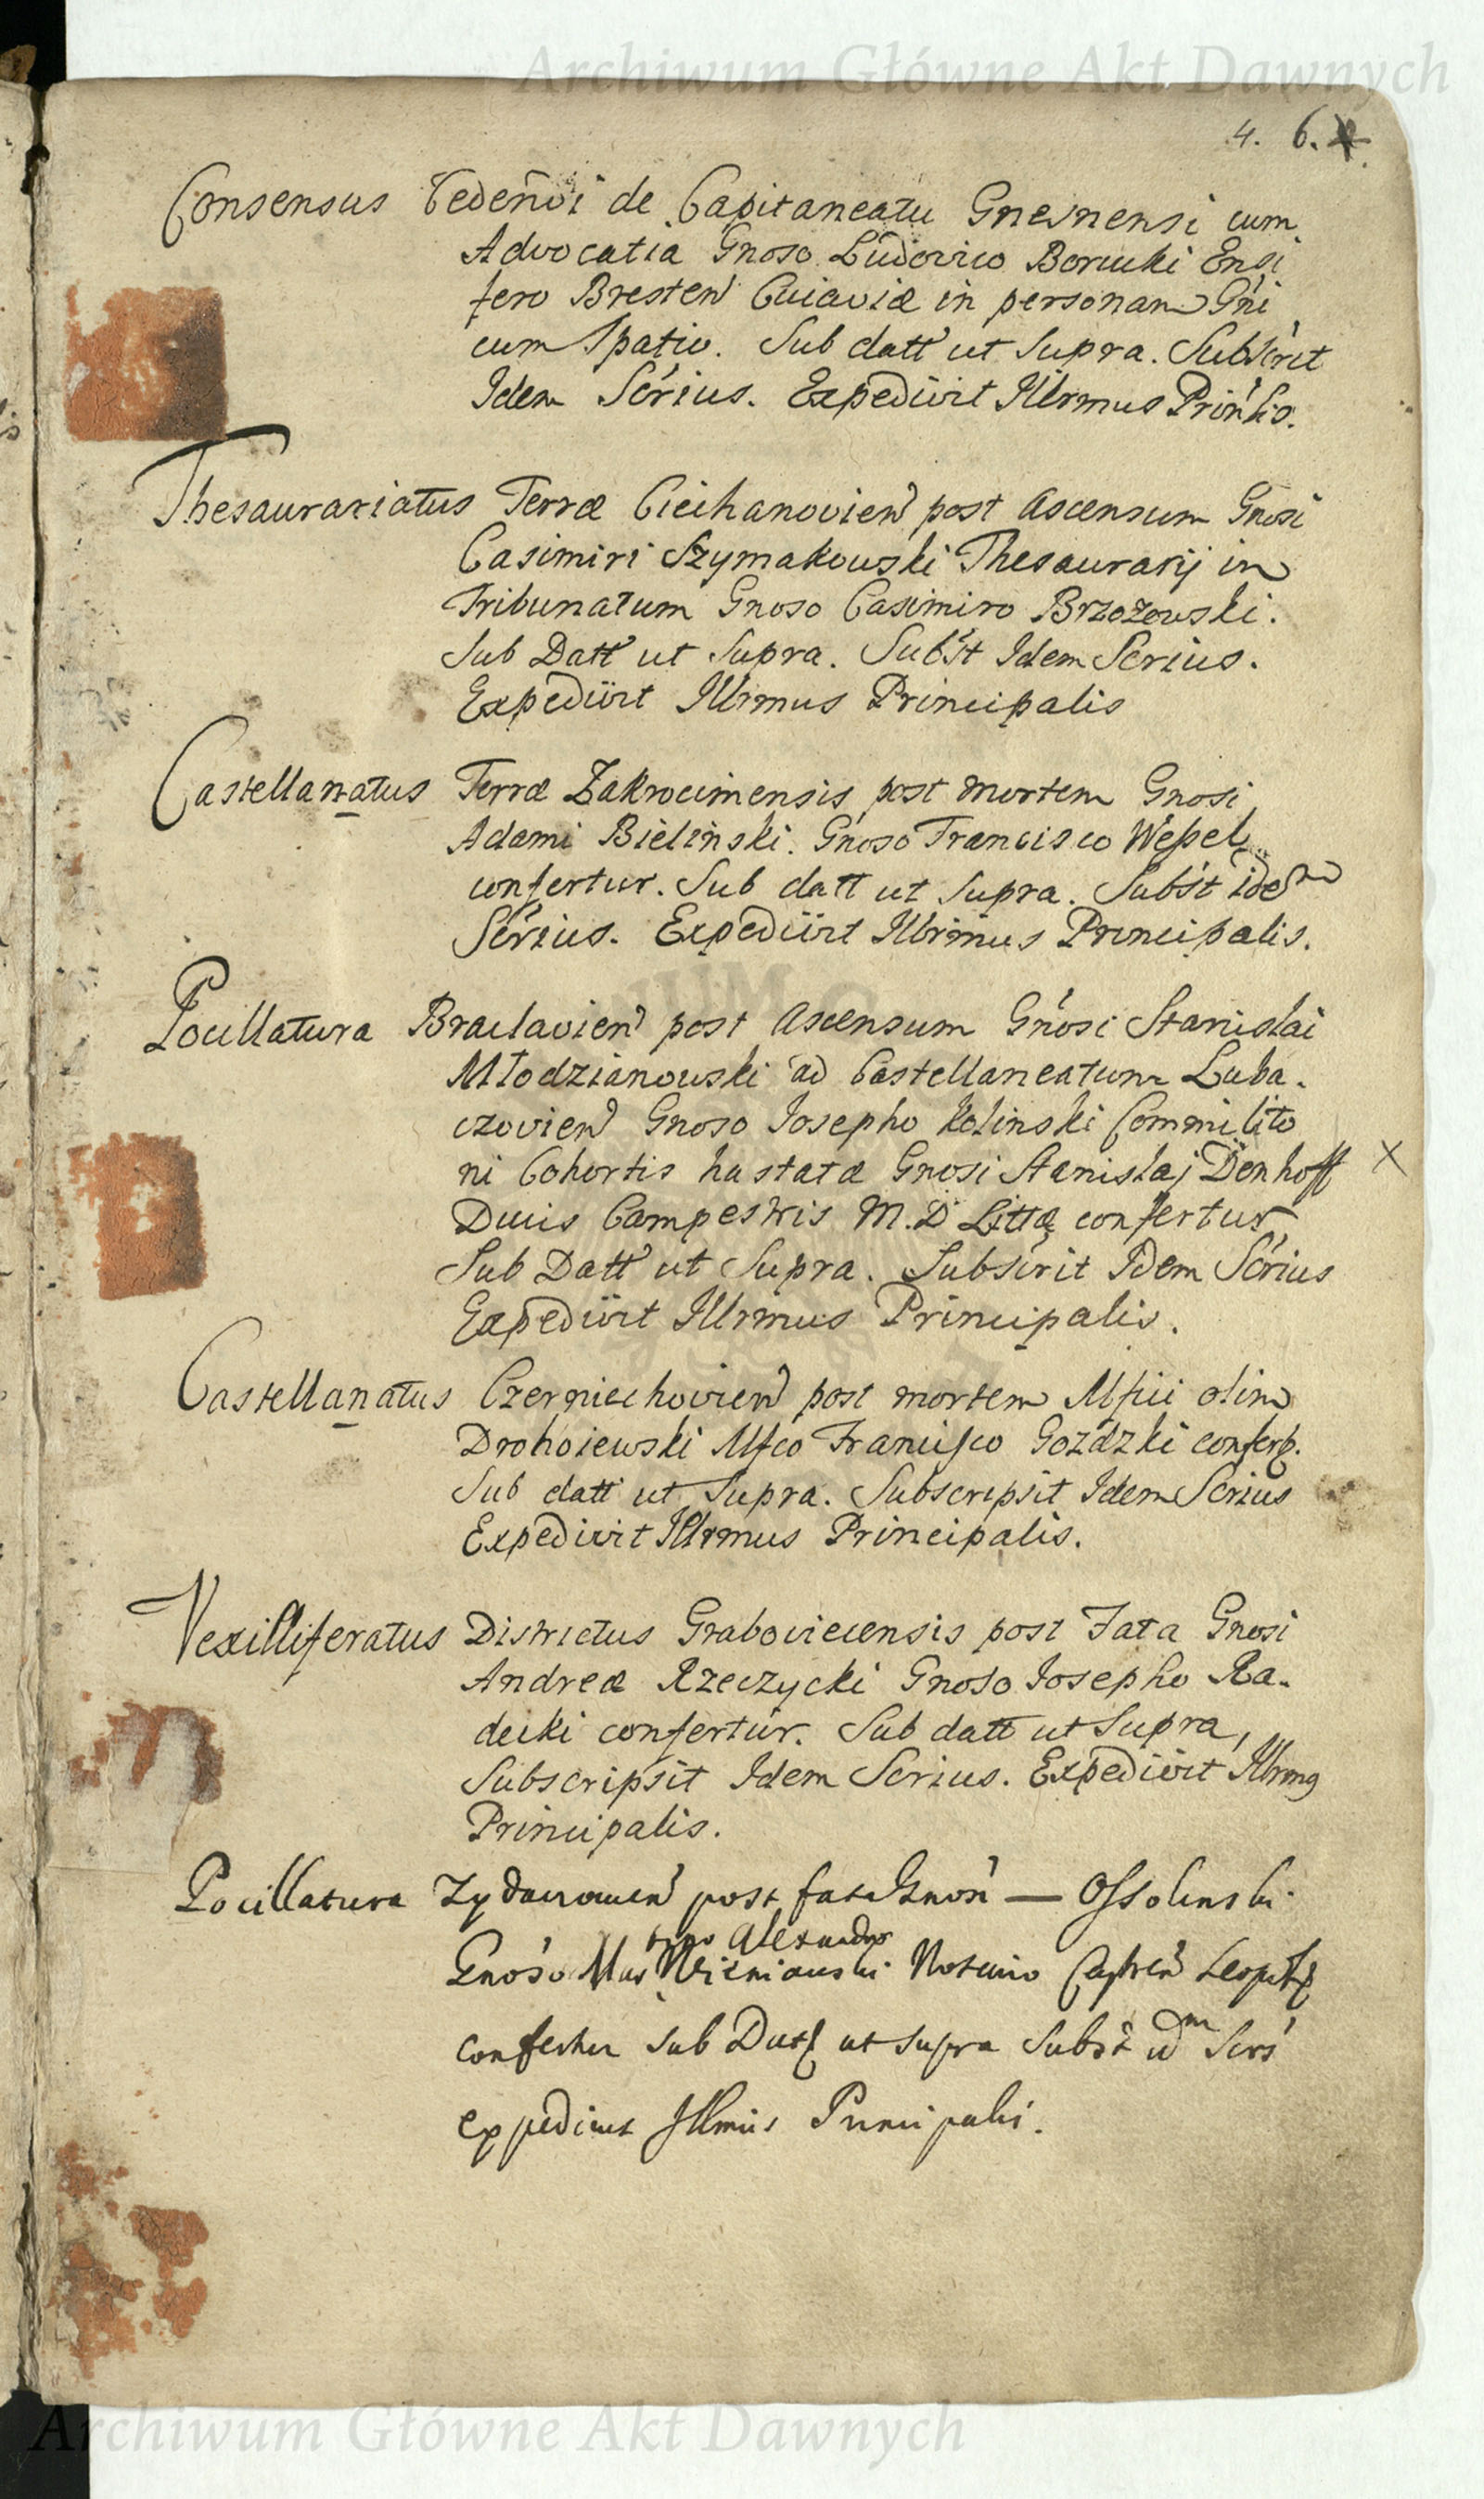 Archiwum Główne Akt Dawnych
4. 6.
Consensus Cedeñdi de Capitaneatu Gnesnensi cum
Advocatia Gnoso Ludovico Borucki Ensi
fero Bresten Cuiaviæ in personam Gñi
cum Spatio. Sub datt ut Supra. Subscrit
Idem Sérius. Expedivit Illrmus Prin̂lis.
Thesaurariatus Terræ Ciechanovien post Ascensum Gnosi
Casimiri Szymakowski Thesaurarij in
Tribunatum Gnoso Casimiro Brzozowski.
Sub Datt ut Supra. Subst Idem Scrius.
Expediivit Illrmus Principalis
Castellanatus Terræ Zakrocimensis post Mortem Gnosi
Adami Bielinski. Gnoso Francisco Wessel
confertur. Sub datt ut Supra. Subst idem
Scrius. Expediivit Illrimus Principalis.
Pocillatura Braclavien post Ascensum Gnosi Stanislai
Młodzianowski ad Castellaneatum Luba-
czovien Gnoso Iosepho Kolinski Commilito
ni Cohortis hastatæ Gnosi Stanislaj Dönhoff X
Ducis Campestris M.D Litttæ confertur
Sub Datt ut Supra. Subscrit Idem Scrius
Expediivit Illrmus Principalis.
Castellanatus Czerniechovien post mortem Mfici olim
Drohoiewski Mfco Francisco Gozdzki confert.
Sub datt ut Supra. Subscripsit Idem Scrius
Expedivit Illrmus Principalis.
Vexilliferatus Districtus Graboviecensis post Fata Gnosi
Andreæ Rzeczycki Gnoso Iosepho Ra-
decki confertur. Sub datt ut Supra,
Subscripsit Idem Scrius. Expedivit Illrmg
Principalis.
Pocillatura Zydaczowien post fata Gnosi — Ossolinski
Alexandro
Gnoso Wiszniowski Notario Castren Leopol
confertur Sub Datt ut supra Subst idm Scrs
expedivit Illmus Principalis.
Archiwum Główne Akt Dawnych